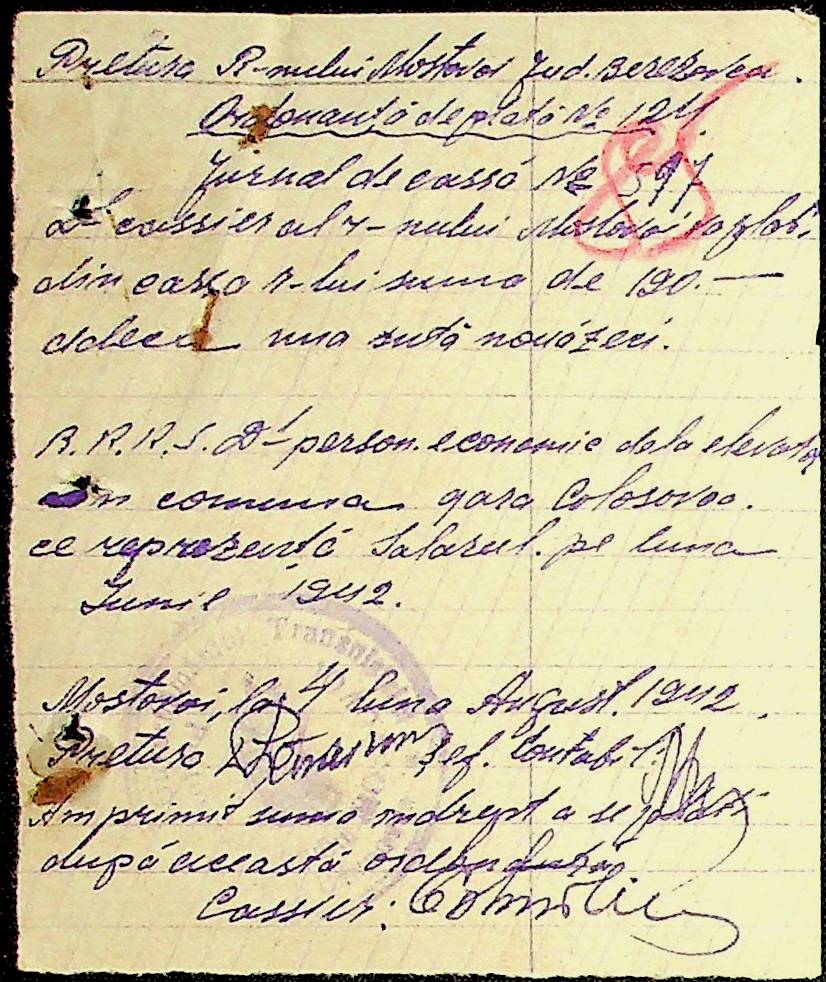 Pretura R-nului Mostovoi Jud. Berezovca.
Ordonanță de plată № 124
Jurnal de cassă № 597
88
Dl cassier al r-nului Mostovoi va plăti
din cassa r-lui suma de 190.—
adeca una sută nouăzeci.
R.R.R.S. Dl person. economic dela elevator
din comuna gara Colosovca.
ce reprezentă Salarul. pe luna
Iunie 1942.
Transnis
Mostovoi, la 4 luna August. 1942.
Pretura Șef. Contabil
Am primit suma indrept a se plăti
după această ordonanță
Cassier: